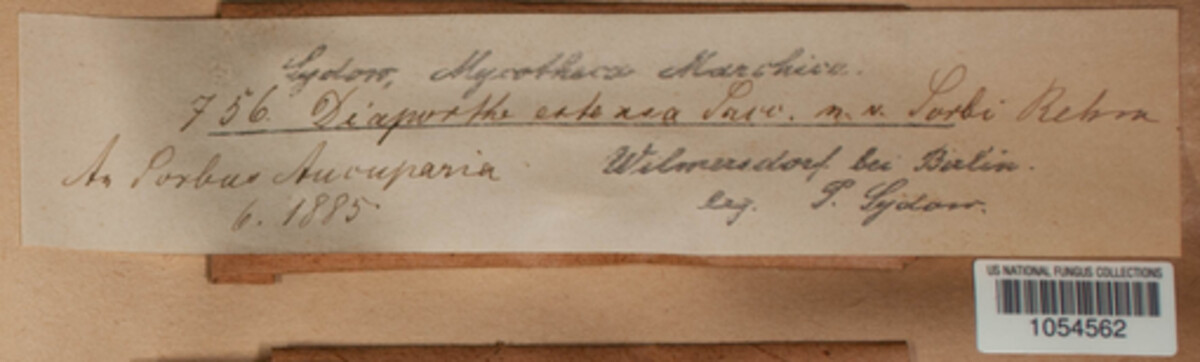 Sydow, Mycotheca Marchica.
756. Diaporthe extensa Sacc. n. v. Sorbi Rehm
An Sorbus Aucuparia
6. 1885
Wilmersdorf bei Berlin.
leg. P. Sydow.
US NATIONAL FUNGUS COLLECTIONS
1054562